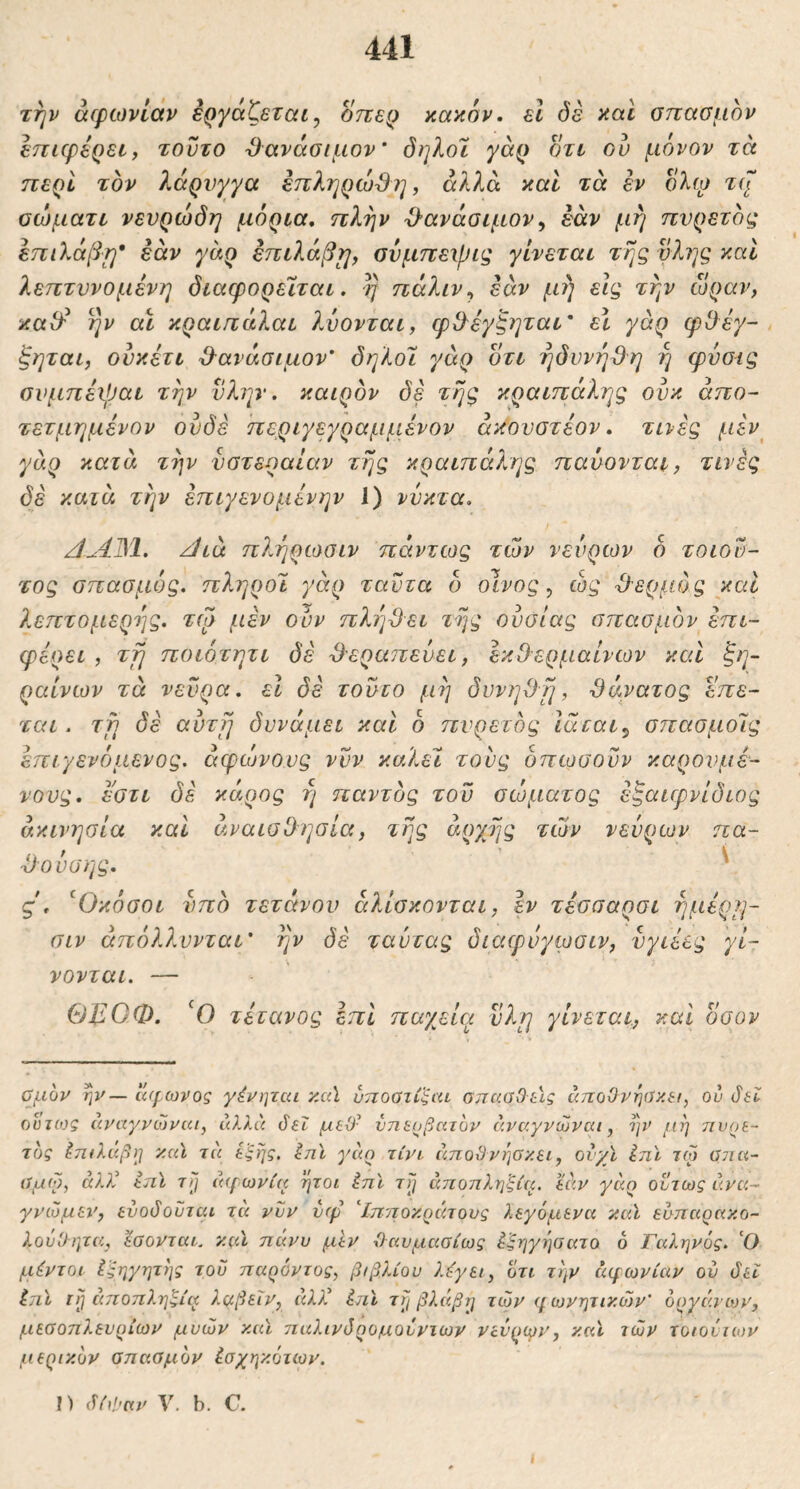 441
τὴν ἀφωνίαν ἐργάζεται, ὅπερ κακόν. εἰ δὲ καὶ σπασμὸν
ἐπιφέρει, τοῦτο θανάσιμον· δηλοῖ γὰρ ὅτι οὐ μόνον τὰ
περὶ τὸν λάρυγγα ἐπληρώθη, ἀλλὰ καὶ τὰ ἐν ὅλῳ τῷ
σώματι νευρώδη μόρια. πλὴν θανάσιμον, ἐὰν μὴ πυρετὸς
ἐπιλάβῃ· ἐὰν γὰρ ἐπιλάβῃ, σύμπεψις γίνεται τῆς ὕλης καὶ
λεπτυνομένη διαφορεῖται. ἢ πάλιν, ἐὰν μὴ εἰς τὴν ὥραν,
καθ᾽ ἣν αἱ κραιπάλαι λύονται, φθέγξηται· εἰ γὰρ φθέγ-
ξηται, οὐκέτι θανάσιμον· δηλοῖ γὰρ ὅτι ἠδυνήθη ἡ φύσις
συμπέψαι τὴν ὕλην. καιρὸν δὲ τῆς κραιπάλης οὐκ ἀπο-
τετμημένον οὐδὲ περιγεγραμμένον ἀκουστέον. τινὲς μὲν
γὰρ κατὰ τὴν ὑστεραίαν τῆς κραιπάλης παύονται, τινὲς
δὲ κατὰ τὴν ἐπιγενομένην 1) νύκτα.
ΔΑΜ. Διὰ πλήρωσιν πάντως τῶν νεύρων ὁ τοιοῦ-
τος σπασμός. πληροῖ γὰρ ταῦτα ὁ οἶνος, ὡς θερμὸς καὶ
λεπτομερής. τῷ μὲν οὖν πλήθει τῆς οὐσίας σπασμὸν ἐπι-
φέρει, τῇ ποιότητι δὲ θεραπεύει, ἐκθερμαίνων καὶ ξη-
ραίνων τὰ νεῦρα. εἰ δὲ τοῦτο μὴ δυνηθῇ, θάνατος ἕπε-
ται. τῇ δὲ αὐτῇ δυνάμει καὶ ὁ πυρετὸς ἰᾶται, σπασμοῖς
ἐπιγενόμενος. ἀφώνους νῦν καλεῖ τοὺς ὁπωσοῦν καρουμέ-
νους. ἔστι δὲ κάρος ἡ παντὸς τοῦ σώματος ἐξαιφνίδιος
ἀκινησία καὶ ἀναισθησία, τῆς ἀρχῆς τῶν νεύρων πα-
θούσης.
ϛ΄. Ὁκόσοι ὑπὸ τετάνου ἁλίσκονται, ἐν τέσσαρσι ἡμέρῃ-
σιν ἀπόλλυνται· ἢν δὲ ταύτας διαφύγωσιν, ὑγιέες γί-
νονται. —
ΘΕΟΦ. Ὁ τέτανος ἐπὶ παχείᾳ ὕλῃ γίνεται, καὶ ὅσον
σμὸν ἢν — ἄφωνος γένηται καὶ ὑποστίξαι σπασθεὶς ἀποθνήσκει, οὐ δεῖ
οὕτως ἀναγνῶναι, ἀλλὰ δεῖ μεθ᾽ ὑπερβατὸν ἀναγνῶναι, ἢν μὴ πυρε-
τὸς ἐπιλάβῃ καὶ τὰ ἑξῆς. ἐπὶ γὰρ τίνι ἀποθνήσκει, οὐχὶ ἐπὶ τῷ σπα-
σμῷ, ἀλλ᾽ ἐπὶ τῇ ἀφωνίᾳ ἤτοι ἐπὶ τῇ ἀποπληξίᾳ. ἐὰν γὰρ οὕτως ἀνα-
γνῶμεν, εὐοδοῦται τὰ νῦν ὑφ᾽ Ἱπποκράτους λεγόμενα καὶ εὐπαρακο-
λούθητα, ἔσονται. καὶ πάνυ μὲν θαυμασίως ἐξηγήσατο ὁ Γαληνός. Ὁ
μέντοι ἐξηγητὴς τοῦ παρόντος, βιβλίου λέγει, ὅτι τὴν ἀφωνίαν οὐ δεῖ
ἐπὶ τῇ ἀποπληξίᾳ λαβεῖν, ἀλλ᾽ ἐπὶ τῇ βλάβῃ τῶν φωνητικῶν· ὀργάνων,
μεσοπλευρίων μυῶν καὶ παλινδρομούντων νεύρων, καὶ τῶν τοιούτων
μερικὸν σπασμὸν ἐσχηκότων.
1) δίψαν V. b. C.